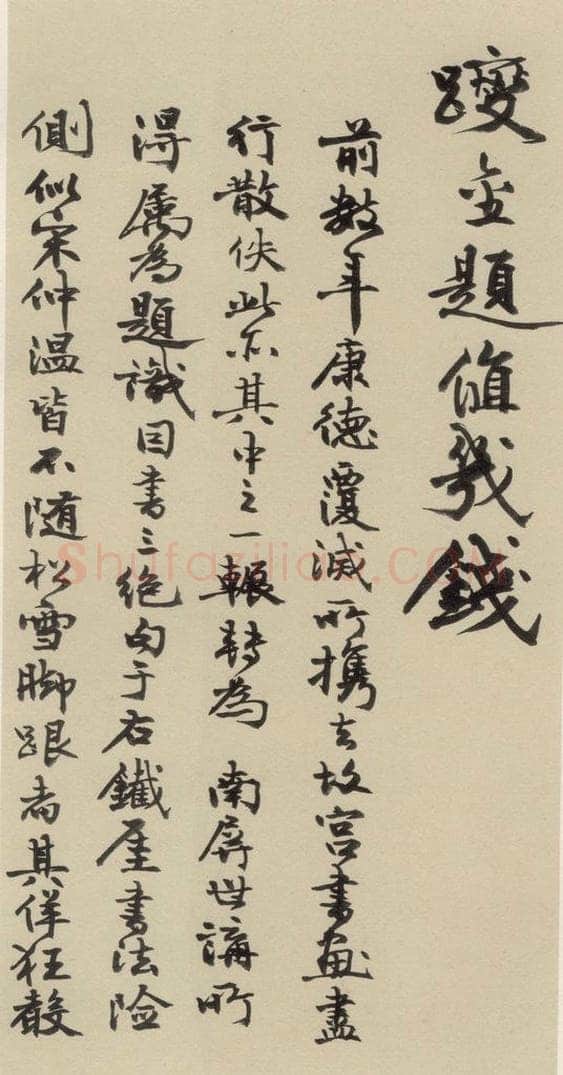 躞金題值幾錢
前數年康德覆滅所攜去故宮書畫盡
行散佚此亦其中之一輾轉為 南屏世講所
得屬為題識因書三絕句于右鐵厓書法險
側似宋仲溫皆不隨松雪脚跟者其佯狂
Shufaziliao.COM